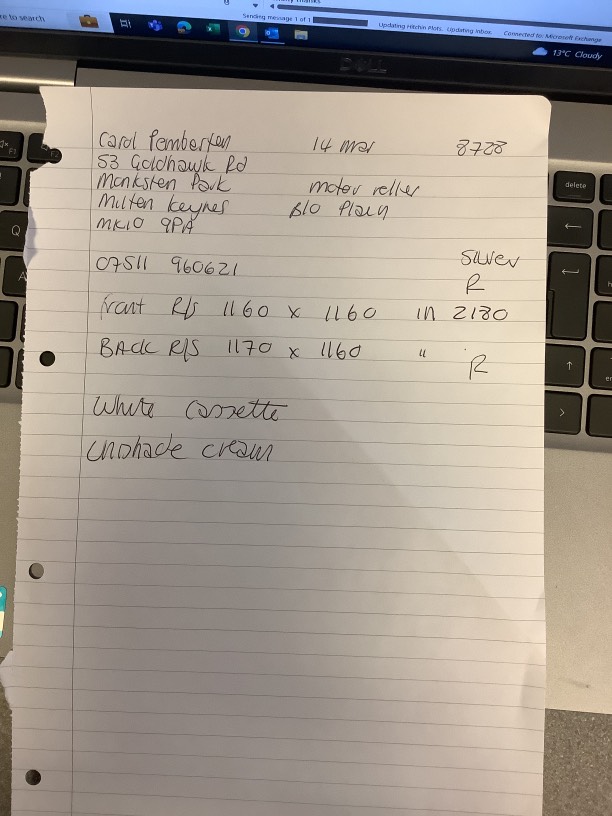 re to search
Sending message 1 of 1
Updating Hitchin Plots. Updating Inbox. Connected to: Microsoft Exchange
13°C Cloudy
DELL
Carol Pemberton 14 Mar 8728
53 Goldhawk Rd
Monksten Park motor roller
Milten Keynes B/O Plain
MK10 9PA
07511 960621 Silver
R
front R/S 1160 x 1160 in 2180
BACK R/S 1170 x 1160 " R
White Cassette
Unshade cream
delete
Q
A
F1